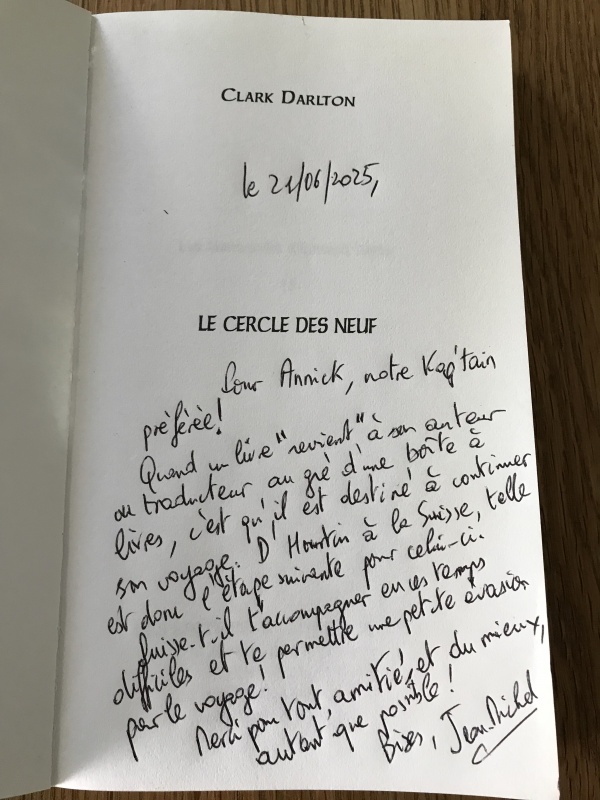 CLARK DARLTON
le 21/06/2025,
LE CERCLE DES NEUF
Pour Annick, notre Kap'tain
préférée!
Quand un livre "revient" à son auteur
ou traducteur, au gré d'une boîte à
livres, c'est qu'il est destiné à continuer
son voyage. D'Hourtin à la Suisse, telle
est donc l'étape suivante pour celui-ci.
Puisse-t-il t'accompagner en ces temps
difficiles et te permettre une petite évasion
par le voyage!
Merci pour tout, amitiés, et du mieux,
autant que possible!
Bises, Jean-Michel